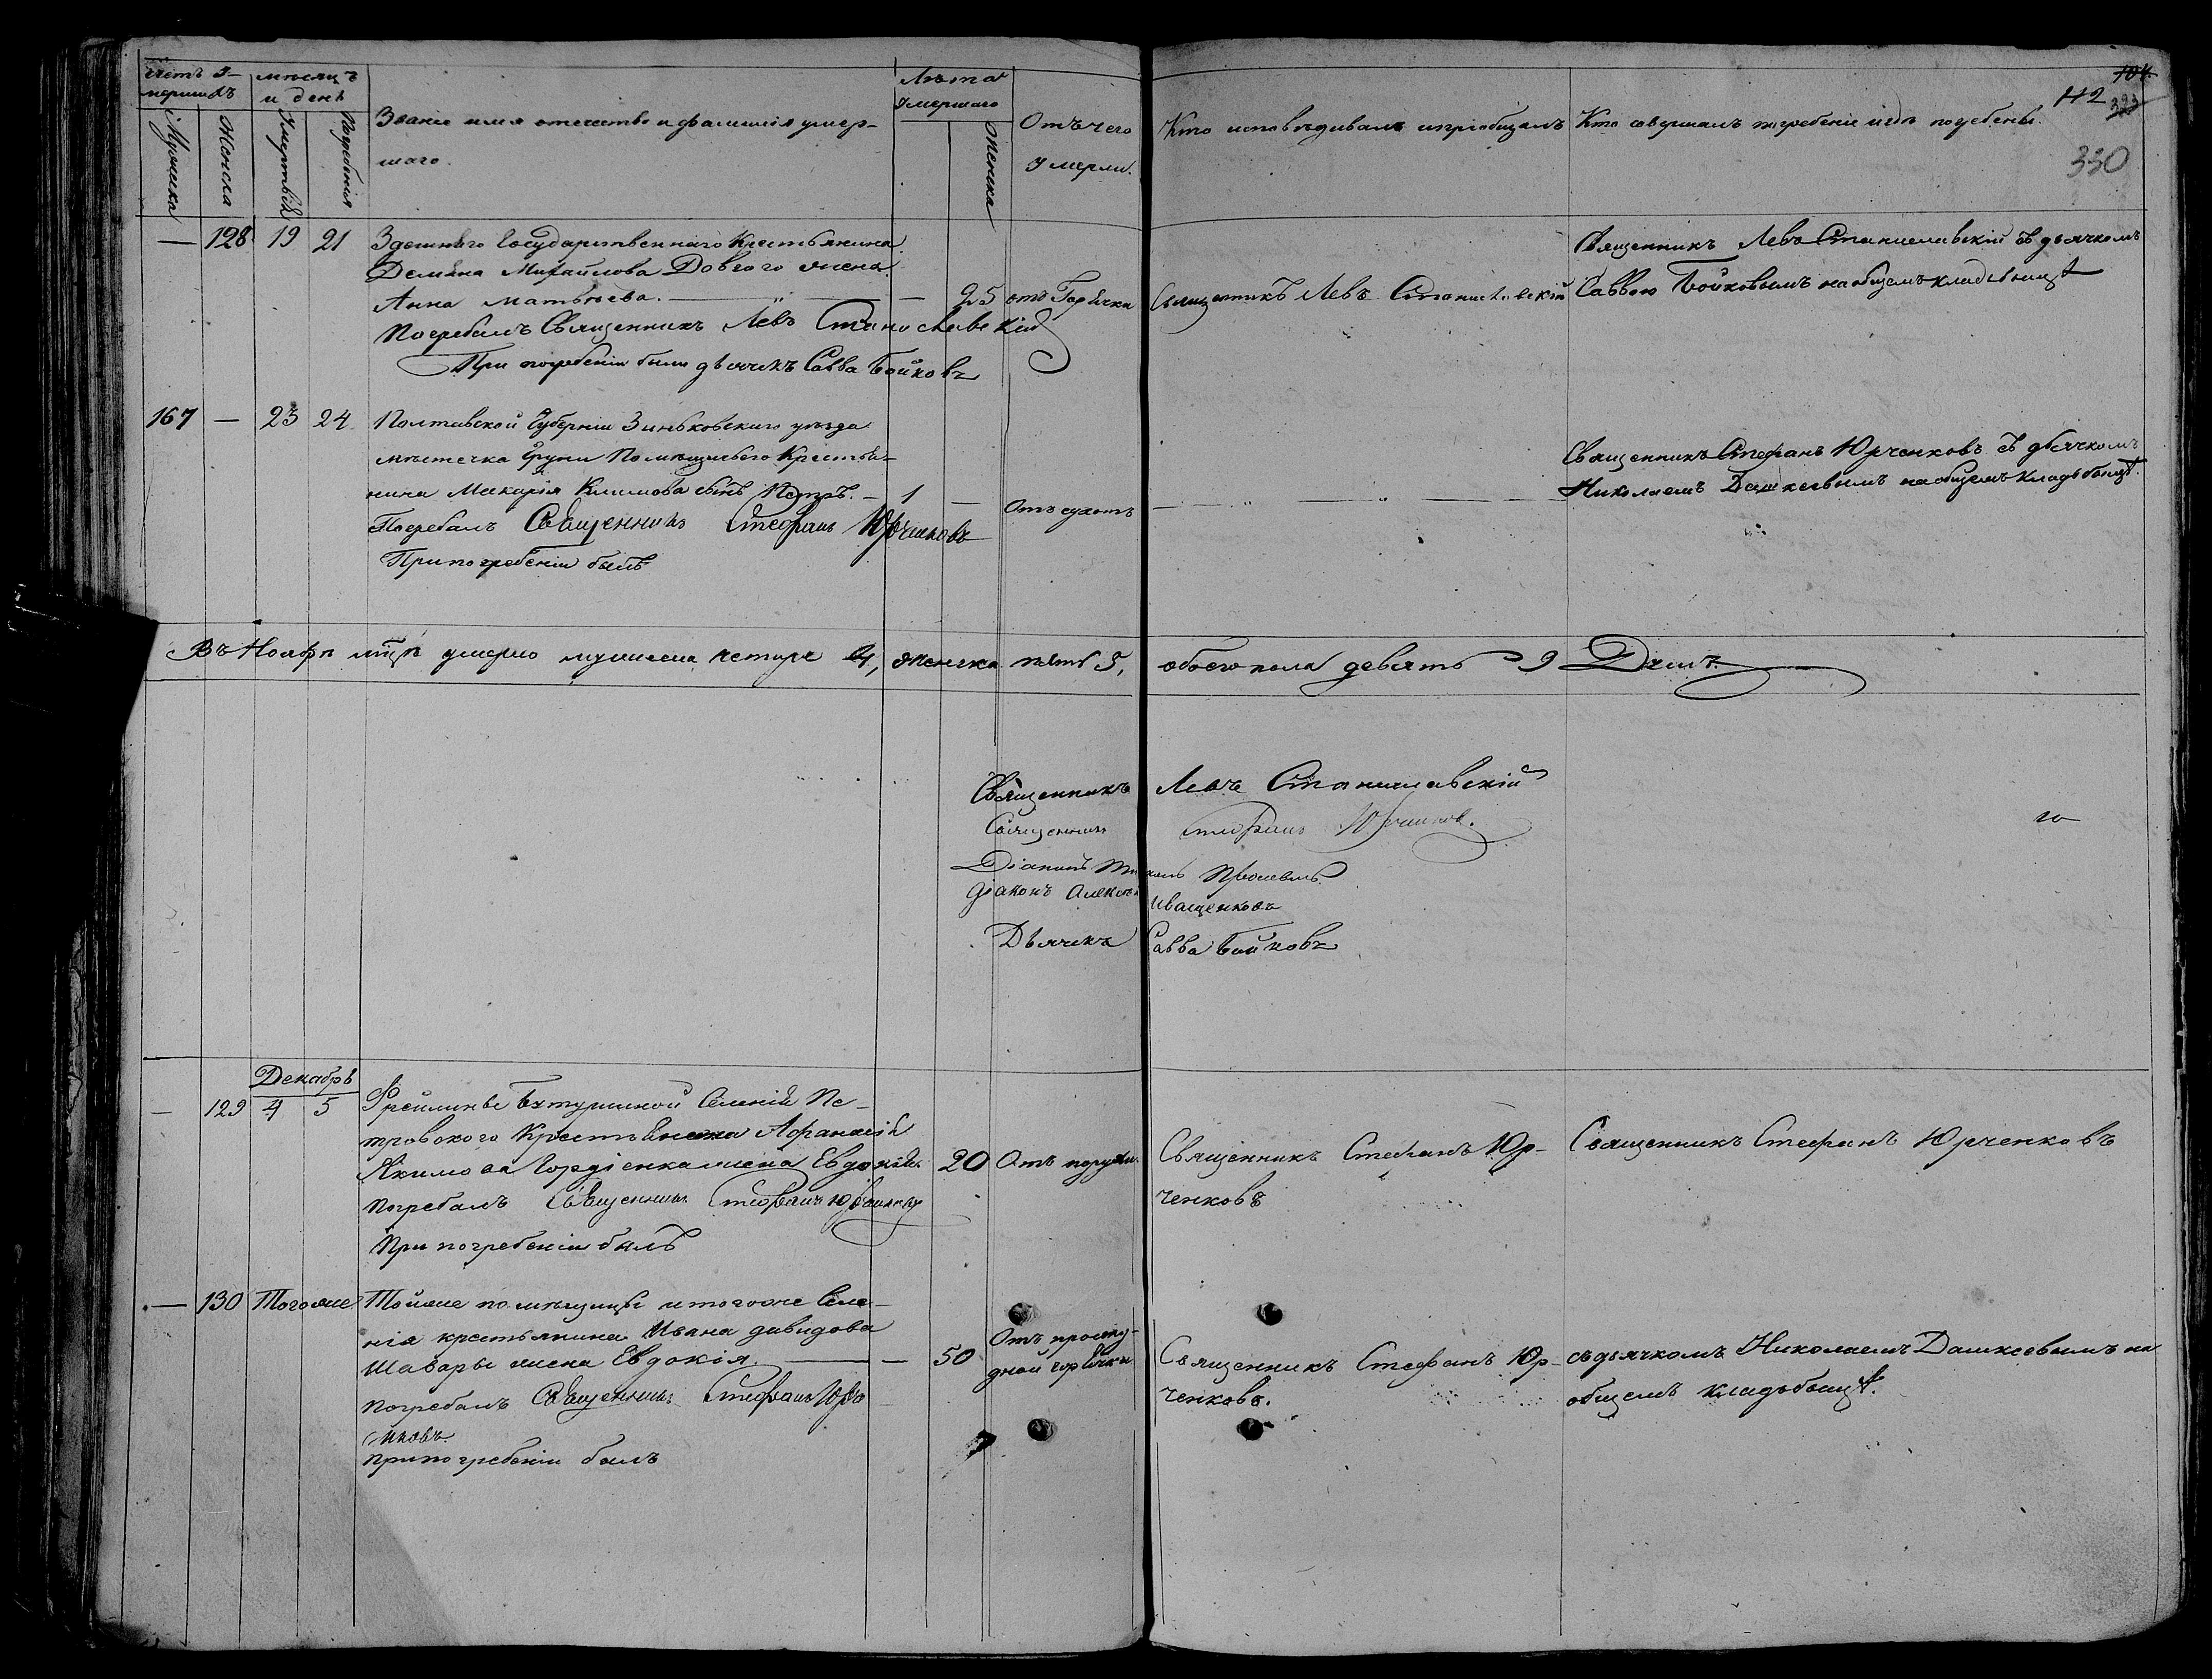 Счетъ у-
мершихъ
Мужеска
Женска
мѣсяцъ
и день
Смертный
Погребенія
Званіе имя отечество и фамилія умер-
шаго.
Лѣта
умершаго
Женска
Отъ чего
умерли.
Кто исповѣдивалъ и пріобщалъ
Кто совершалъ погребеніе и гдѣ погребены.
104
112
330
— 128 19 21
Здешняго Государственнаго Крестьянина
Демьяна Михайлова Довгого жена
Анна Матвѣева. — — 25 отъ Горячки
Погребалъ Священникъ Левъ Станиславскій
При погребеніи былъ дьячекъ Савва Бойковъ
Священникъ Левъ Станиславскій
Священникъ Левъ Станиславскій съ дьячкомъ
Саввою Бойковымъ на общемъ кладбищѣ
167 — 23 24
Полтавской Губерніи Зиньковскаго уѣзда
мѣстечка Груни Помѣщичьего Крестья-
нина Макарія Климова сынъ Петръ. — 1 — Отъ сухотъ
Погребалъ Священникъ Стефанъ Юрченковъ
При погребеніи былъ
Священникъ Стефанъ Юрченковъ съ дьячкомъ
Николаемъ Дашкеевымъ на общемъ кладьбищѣ.
Въ Ноябрѣ мцѣ умерло мужеска четыре 4, женска пять 5, обоего пола девять 9 Душъ.
Священникъ Левъ Станиславскій
Священникъ Стефанъ Юрченков.
Діаконъ
Діаконъ Алексѣй Иващенковъ
Дьячекъ Савва Бойковъ
Декабрь
— 129 4 5
Фрейлинѣ селенія Пе-
тровского Крестьянина Афанасія
Якимова Гордіенка жена Евдокія 20 Отъ
Погребалъ Священникъ Стефанъ Юрченковъ
При погребеніи былъ
Священникъ Стефанъ Юр-
ченковъ
Священникъ Стефанъ Юрченковъ
— 130 Того же
Тойже помѣщицы и того же Селе-
нія крестьянина Ивана Давидова
Шавары жена Евдокія. — — 50
Отъ просту-
дной горячки
Погребалъ Священникъ Стефанъ Юрче
нковъ.
При погребеніи былъ
Священникъ Стефанъ Юр-
ченковъ.
съ дьячкомъ Николаемъ Дашкеевымъ на
общемъ кладьбищѣ.